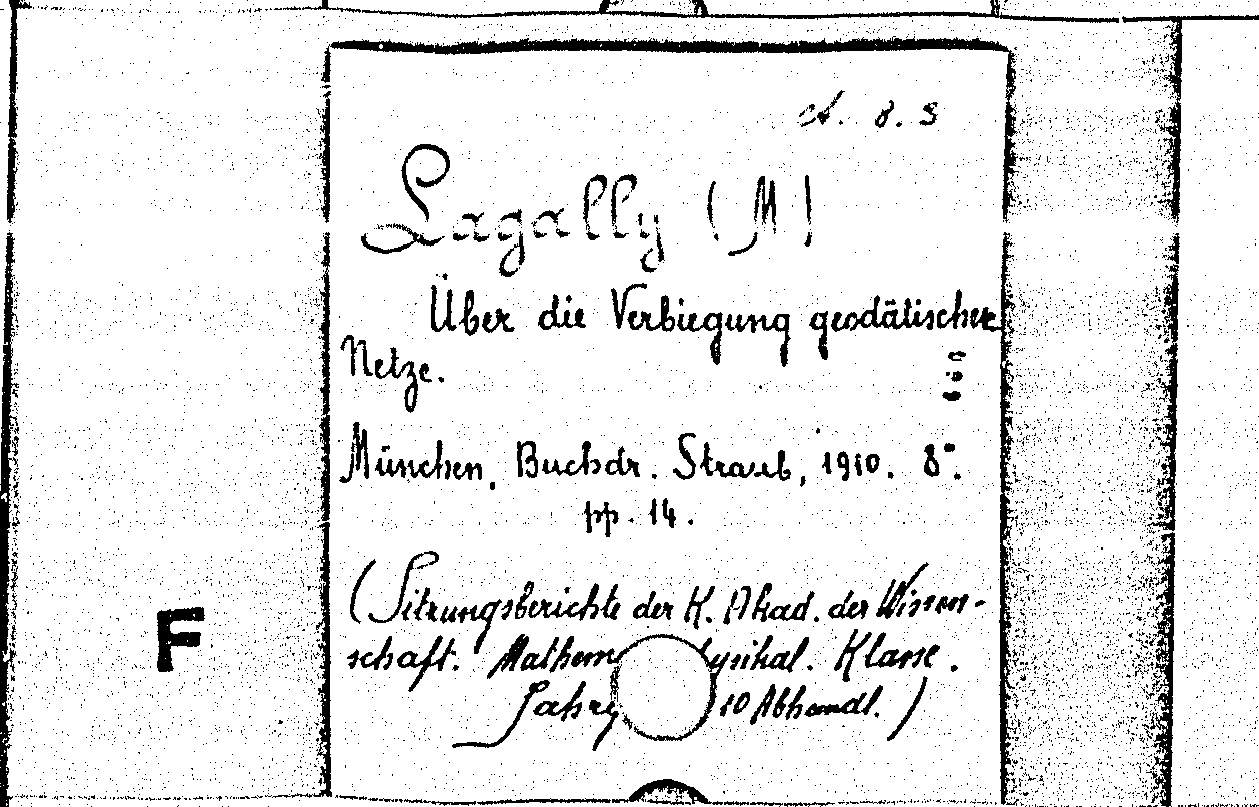 A. 8. S
Lagally (M)
Über die Verbiegung geodätischer
Netze.
München, Buchdr. Straub, 1910. 8°.
pp. 14.
F
(Sitzungsberichte der K. Akad. der Wissen-
schaft. Mathem ysikal. Klasse.
Jahrg 10 Abhandl.)